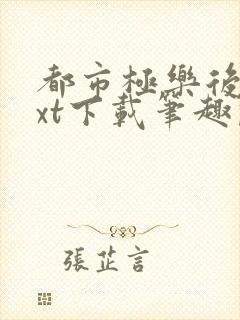 都市極樂後
xt下載筆趣
張芷言